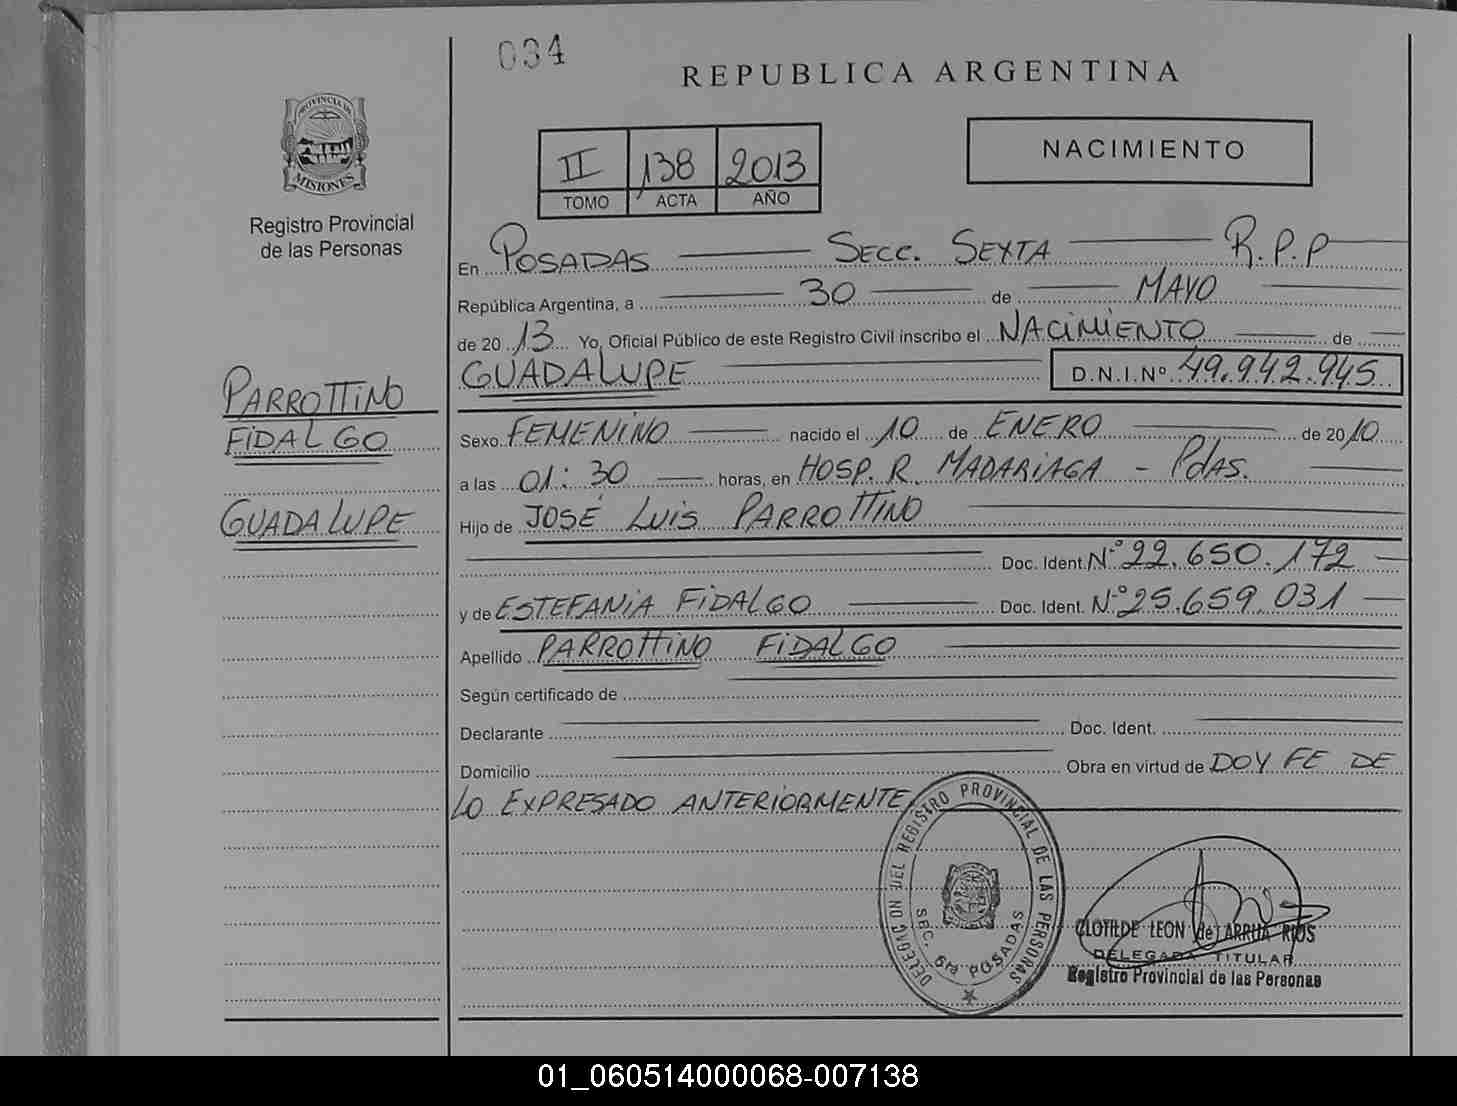 034
REPUBLICA ARGENTINA
PROVINCIA DE
MISIONES
Registro Provincial
de las Personas
II 138 2013
TOMO ACTA AÑO
NACIMIENTO
En POSADAS SECC. SEXTA R.P.P
República Argentina, a 30 de MAYO
de 20 13 Yo, Oficial Público de este Registro Civil inscribo el NACIMIENTO de
GUADALUPE D.N.I.Nº 49.942.945
PARROTTINO
FIDALGO
GUADALUPE
Sexo FEMENINO nacido el 10 de ENERO de 20 10
a las 01:30 horas, en HOSP. R. MADARIAGA - PdAS.
Hijo de JOSÉ LUIS PARROTTINO
Doc. Ident. Nº 22.650.172
y de ESTEFANIA FIDALGO Doc. Ident. Nº 25.659.031
Apellido PARROTTINO FIDALGO
Según certificado de
Declarante Doc. Ident.
Domicilio Obra en virtud de DOY FE DE
LO EXPRESADO ANTERIORMENTE
DELEGACION DEL REGISTRO PROVINCIAL DE LAS PERSONAS
SEC. 6ta POSADAS
CLOTILDE LEON de ARRUA RIOS
DELEGADA TITULAR
Registro Provincial de las Personas
01_060514000068-007138